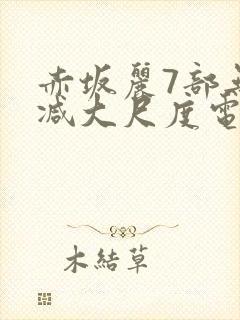 赤坂麗7部無
减大尺度電
木結草